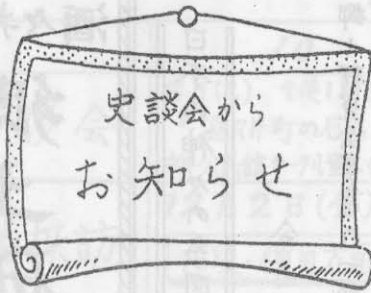 史談会から
お知らせ